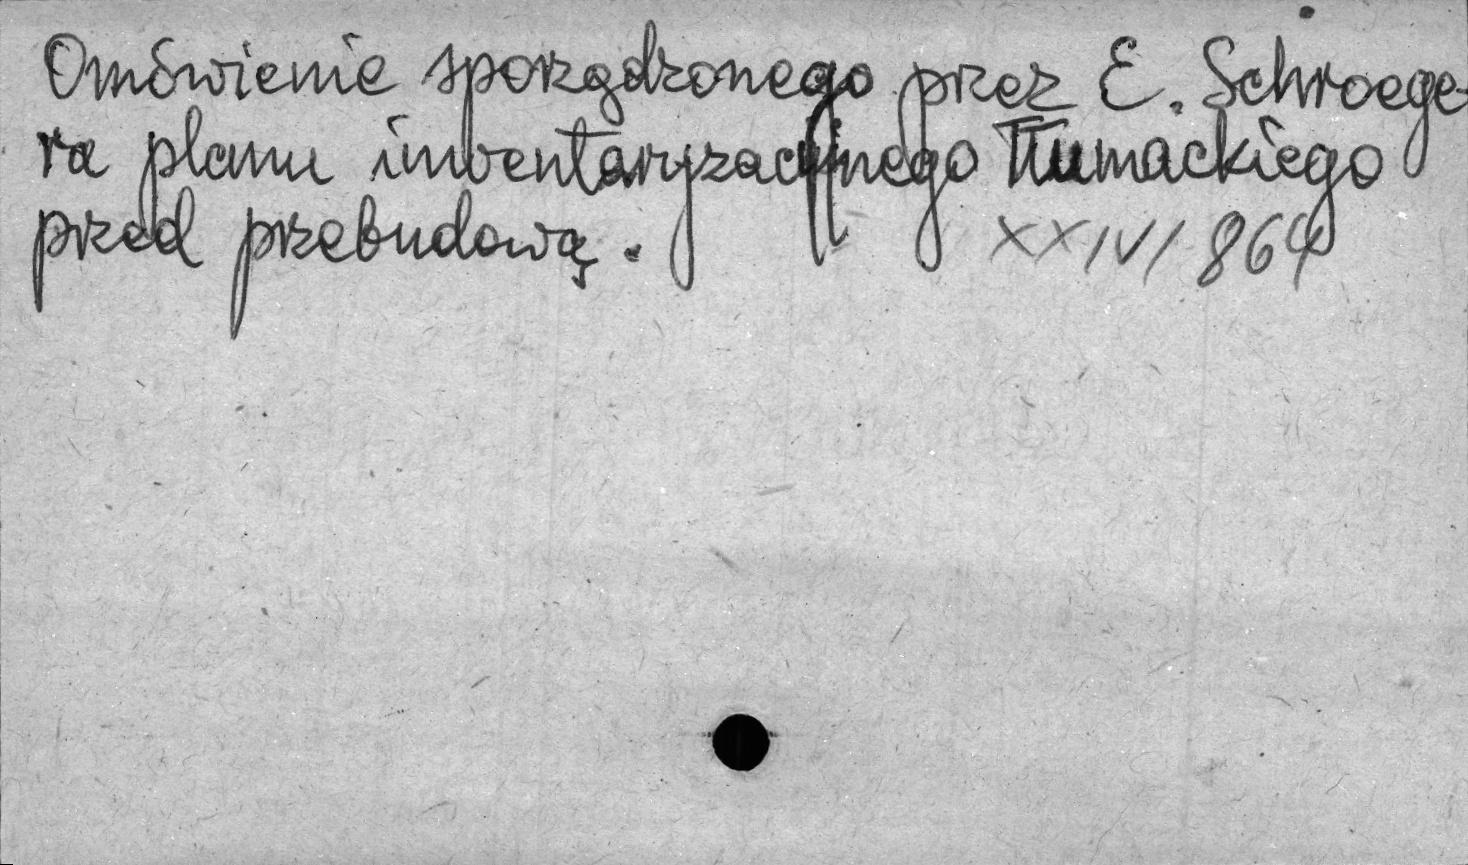 Omówienie sporządzonego przez E. Schroege-
ra planu inwentaryzacyjnego Tłumackiego
przed przebudową. XXIV/864